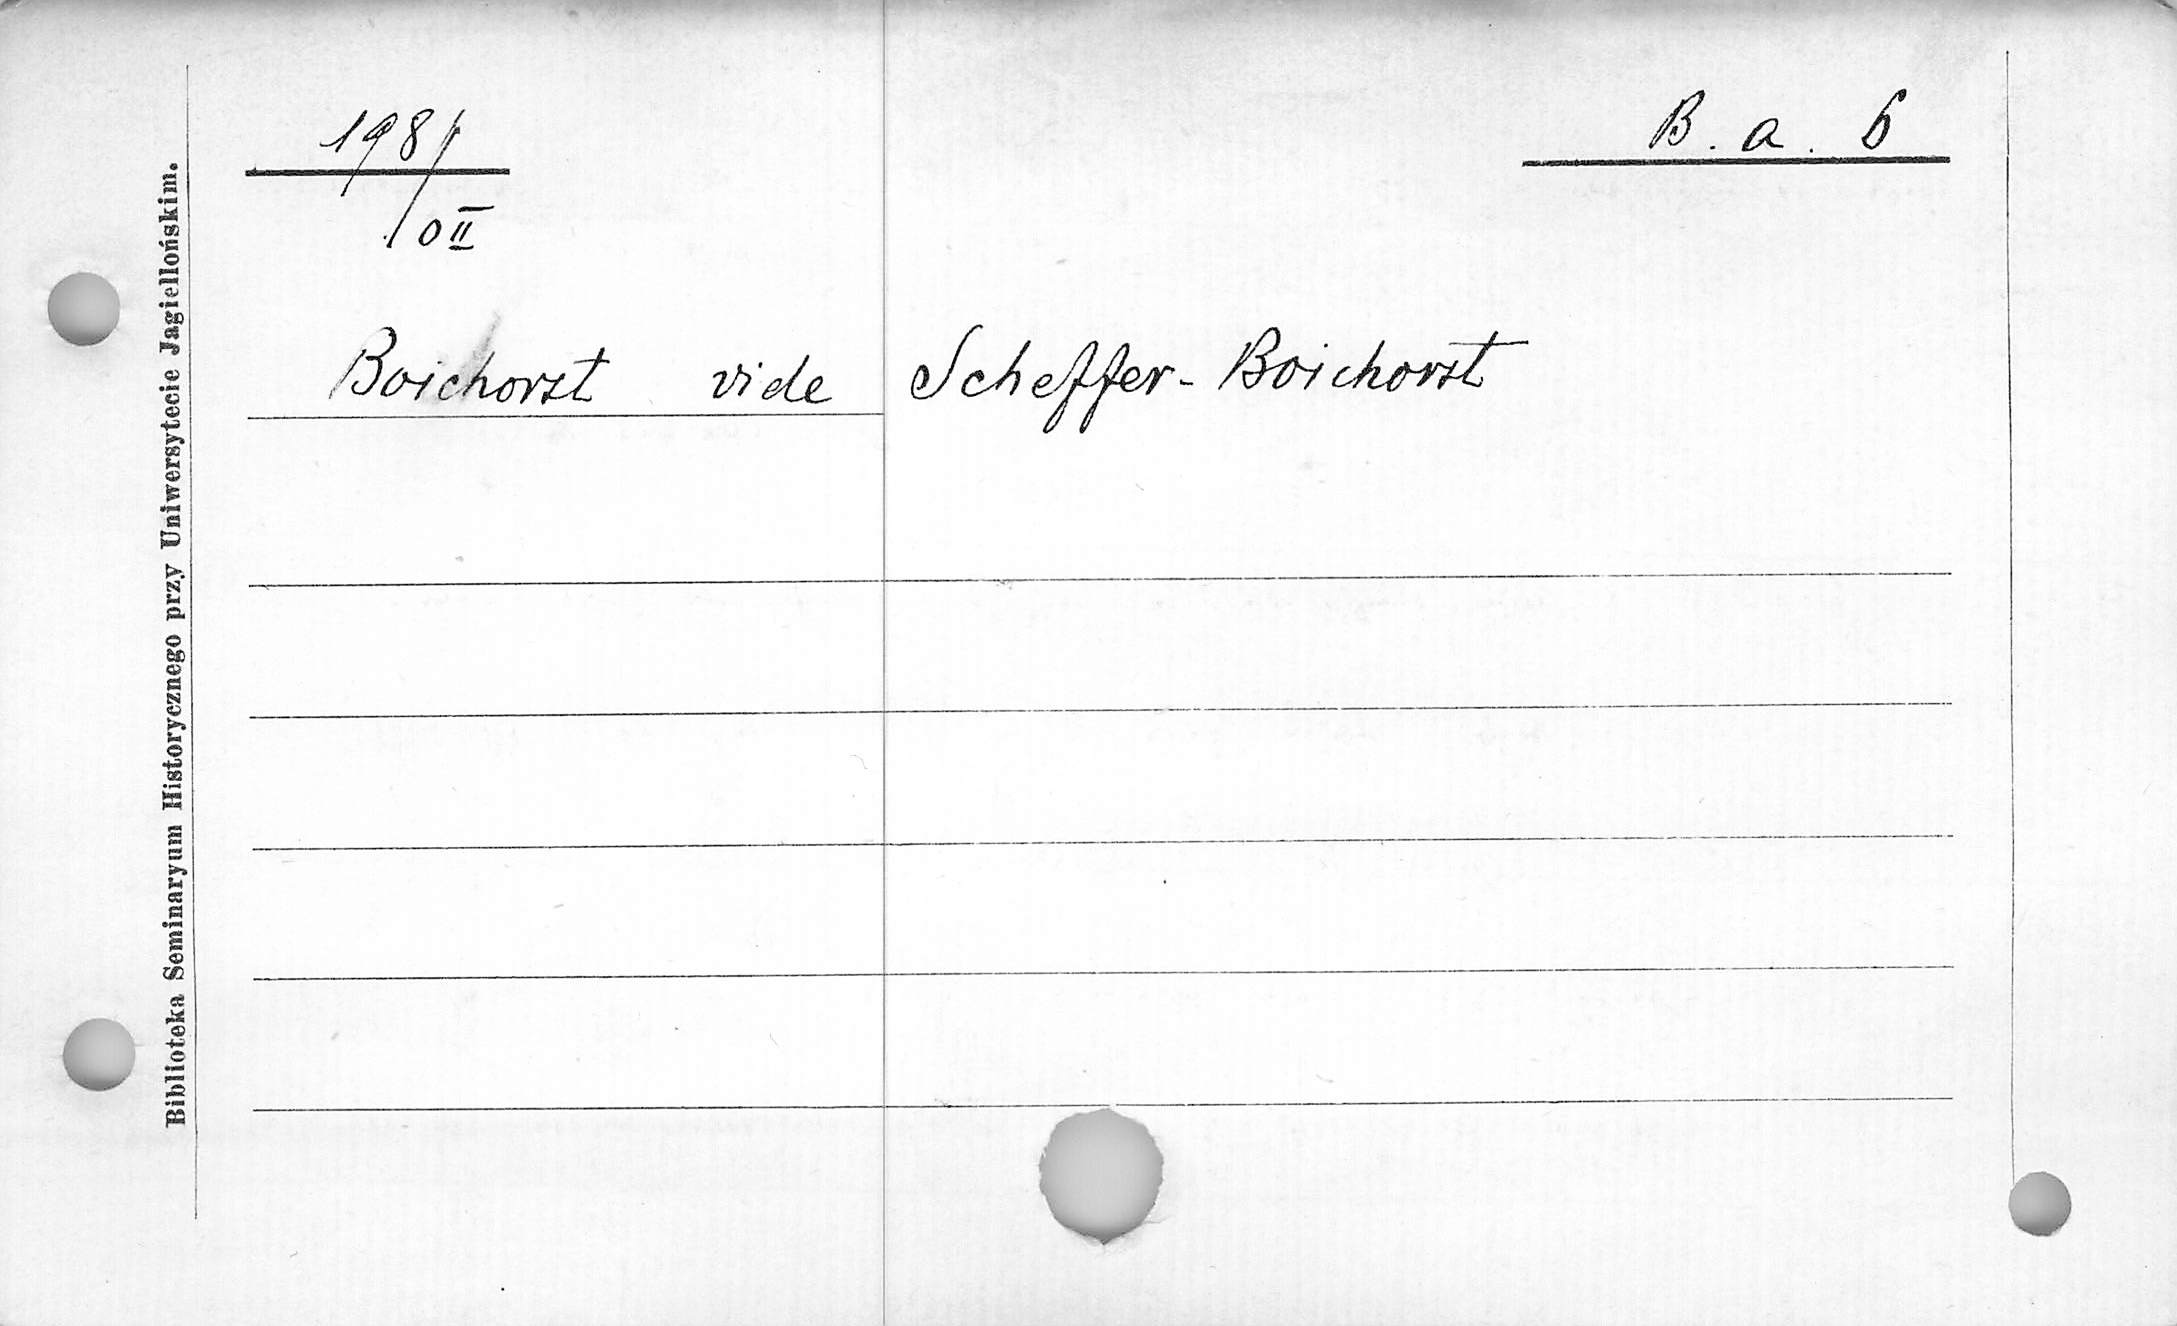 198/
0 II
B. a. 6
Boichorst vide Scheffer-Boichorst
Biblioteka Seminaryum Historycznego przy Uniwersytecie Jagiellońskim.